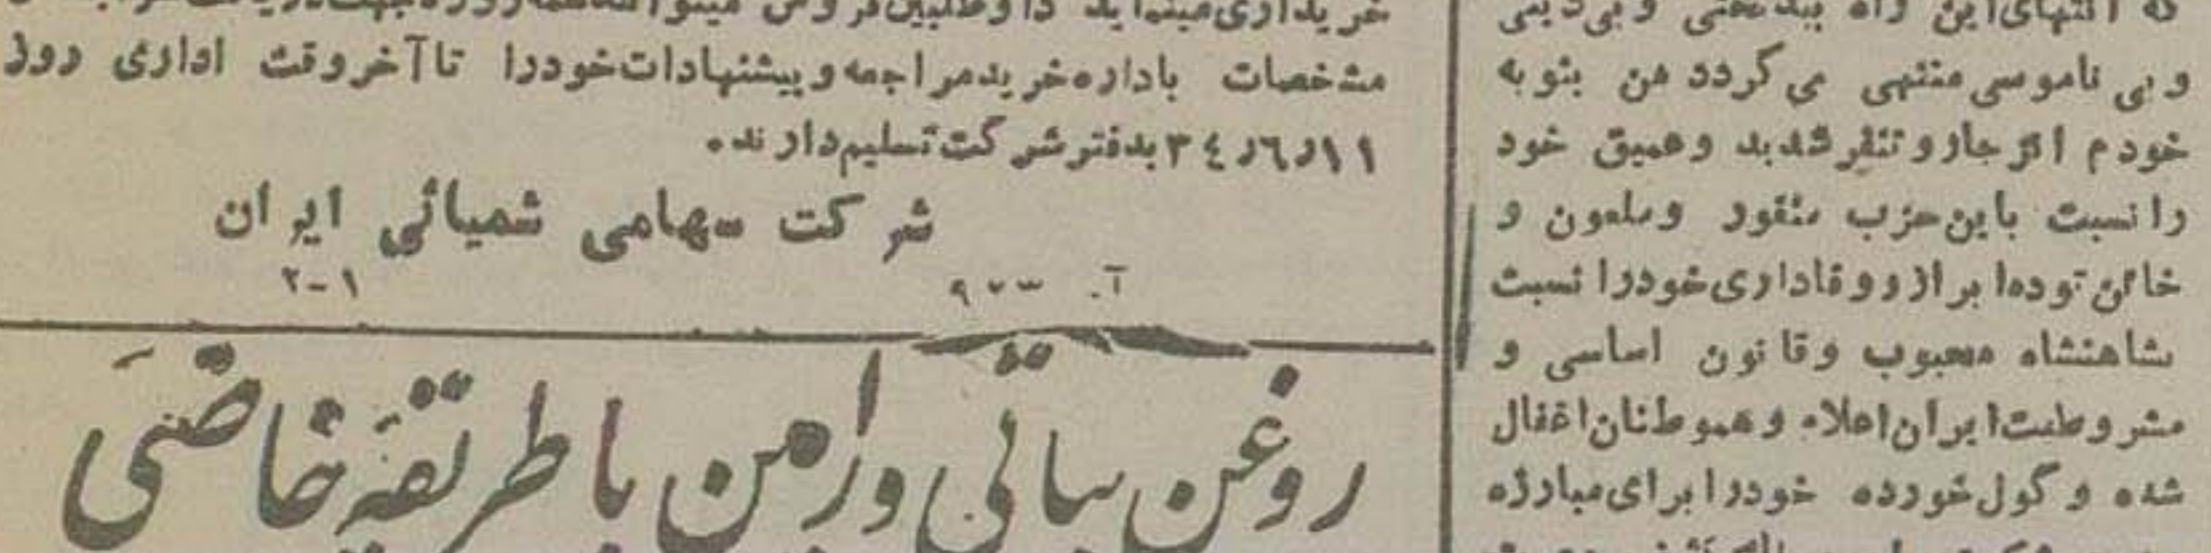 که انتهای این راه ببدبختی و بی‌دینی
و بی ناموسی منتهی می گردد من بنوبه
خودم انزجار و تنفر شدید و عمیق خود
را نسبت باین حزب منفور و ملعون و
خائن توده ابراز و وفاداری خود را نسبت
بشاهنشاه محبوب و قانون اساسی و
مشروطیت ایران اعلام و هموطنان اغفال
شده و گول خورده خود را برای مبارزه
خریداری مینماید داوطلبین فروش میتوانند همه روزه جهت دریافت
مشخصات باداره خرید مراجعه و پیشنهادات خود را تا آخر وقت اداری روز
۳٤ر٦ر۱۱ بدفتر شرکت تسلیم دارند.
شرکت سهامی شمیائی ایران
آ. ۹۷۳
۲-۱
روغن نباتی ورامن با طریقه خاصی